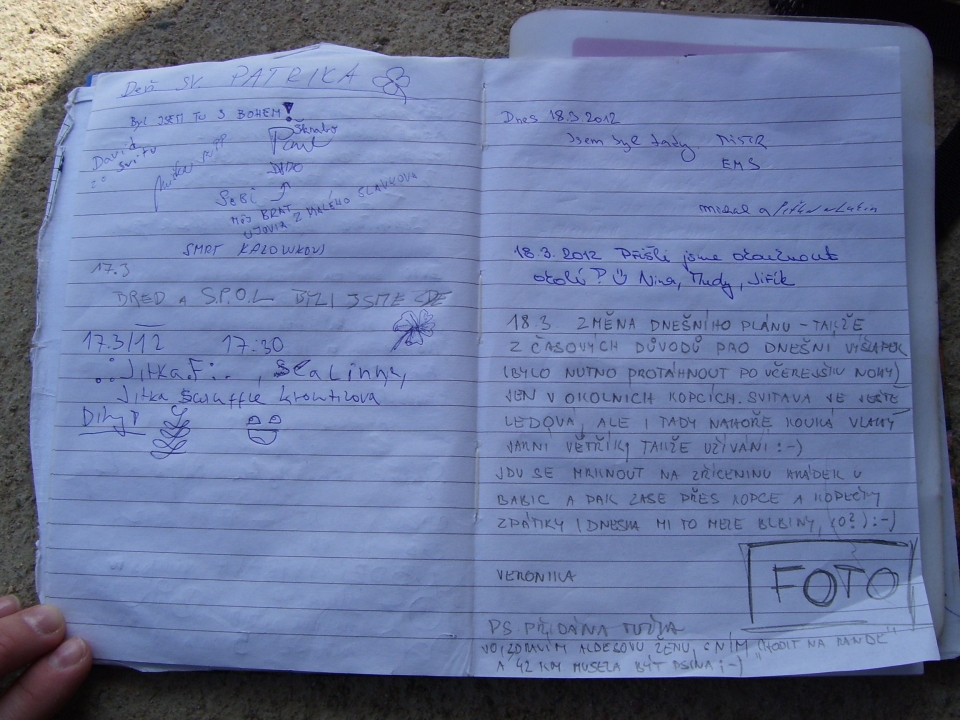 Deň SV. PATRIKA
BYL JSEM TU S BOHEM!
David
ze Svitu
Škrabo
SEBÍ
MŮJ BRAT
UJOVIA Z MALÉHO SLAVKOVA
SMRT
17.3
DRED a S.P.O.L BYLI JSME ZDE
17.3/12 17:30
Jitka.F
Jitka Scruffle
Díky
Dnes 18.3 2012
Jsem byl tady MISTR
EMS
michal a
18.3.2012 Přišli jsme očuchnout
okolí? Nina, Trudy, Jiřík
18.3. ZMĚNA DNEŠNÍHO PLÁNU - TAKŽE
Z ČASOVÝCH DŮVODŮ PRO DNEŠNÍ VÝŠLAP
(BYLO NUTNO PROTÁHNOUT PO VČEREJŠKU NOHY)
JEN V OKOLNÍCH KOPCÍCH. SVITAVA JE JEŠTĚ
LEDOVÁ, ALE I TADY NAHOŘE FOUKÁ VLAHÝ
JARNÍ VĚTŘÍK, TAKŽE UŽÍVÁNÍ :-)
JDU SE MRKNOUT NA ZŘÍCENINU HRÁDEK U
BABIC A PAK ZASE PŘES KOPCE A KOPEČKY
ZPÁTKY (DNESKA MI TO MELE BLBINY, CO?) :-)
VERONIKA
FOTO
PS. PŘIDÁNA TUŽKA
POZDRAVUJI ALDEGOVU ŽENU, S NÍM "CHODIT NA RANDE"
A 42 KM MUSELA BÝT PSINA ;-)